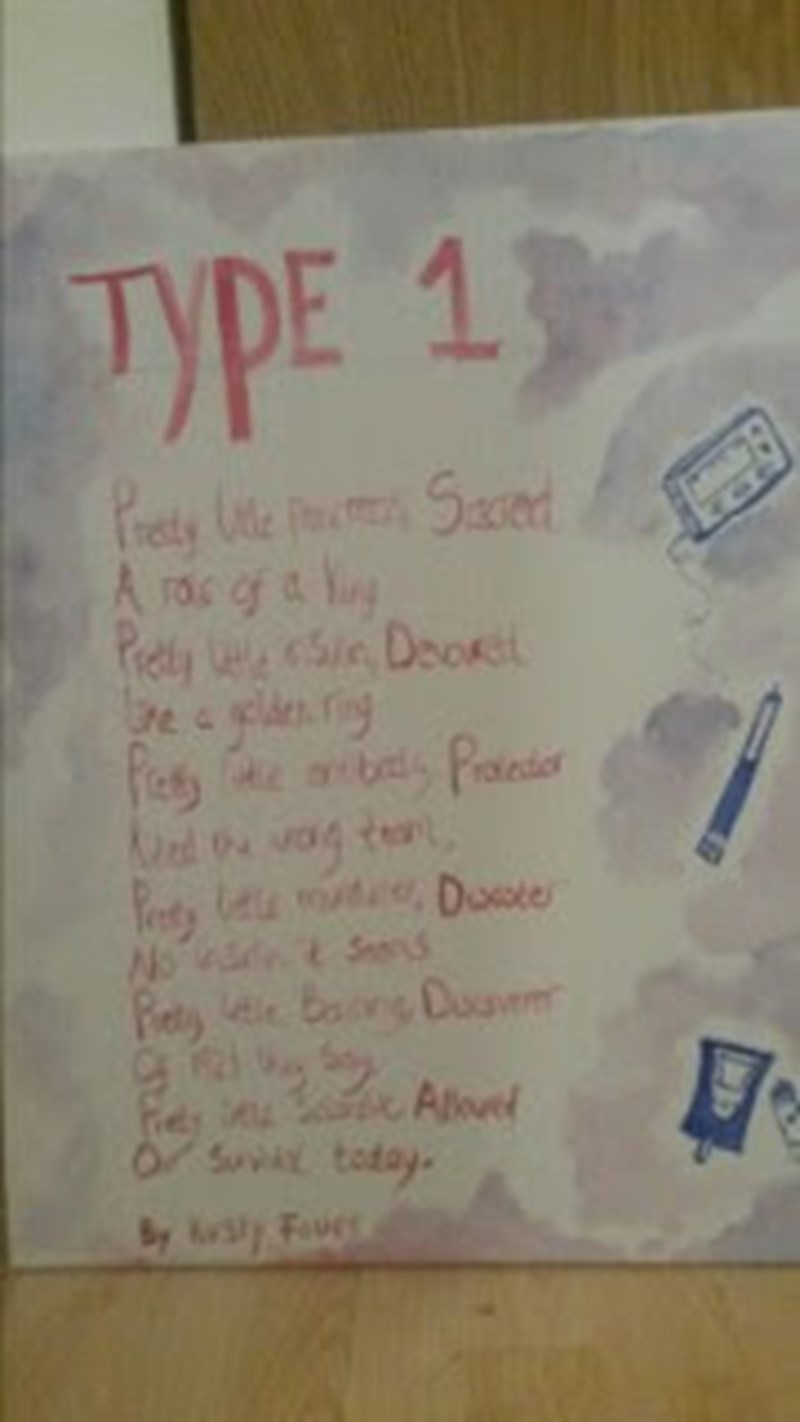 TYPE 1
Pretty little pancreas, Sacred
A role of a King
Pretty little insulin, Devoured
Like a golden ring
Pretty little antibody, Protector
the wrong team,
Pretty little murderer, Disaster
No insulin it seems
Pretty little Banting, Discoverer
Of they Say
Pretty little Allowed
Our Survival today.
By Kirsty